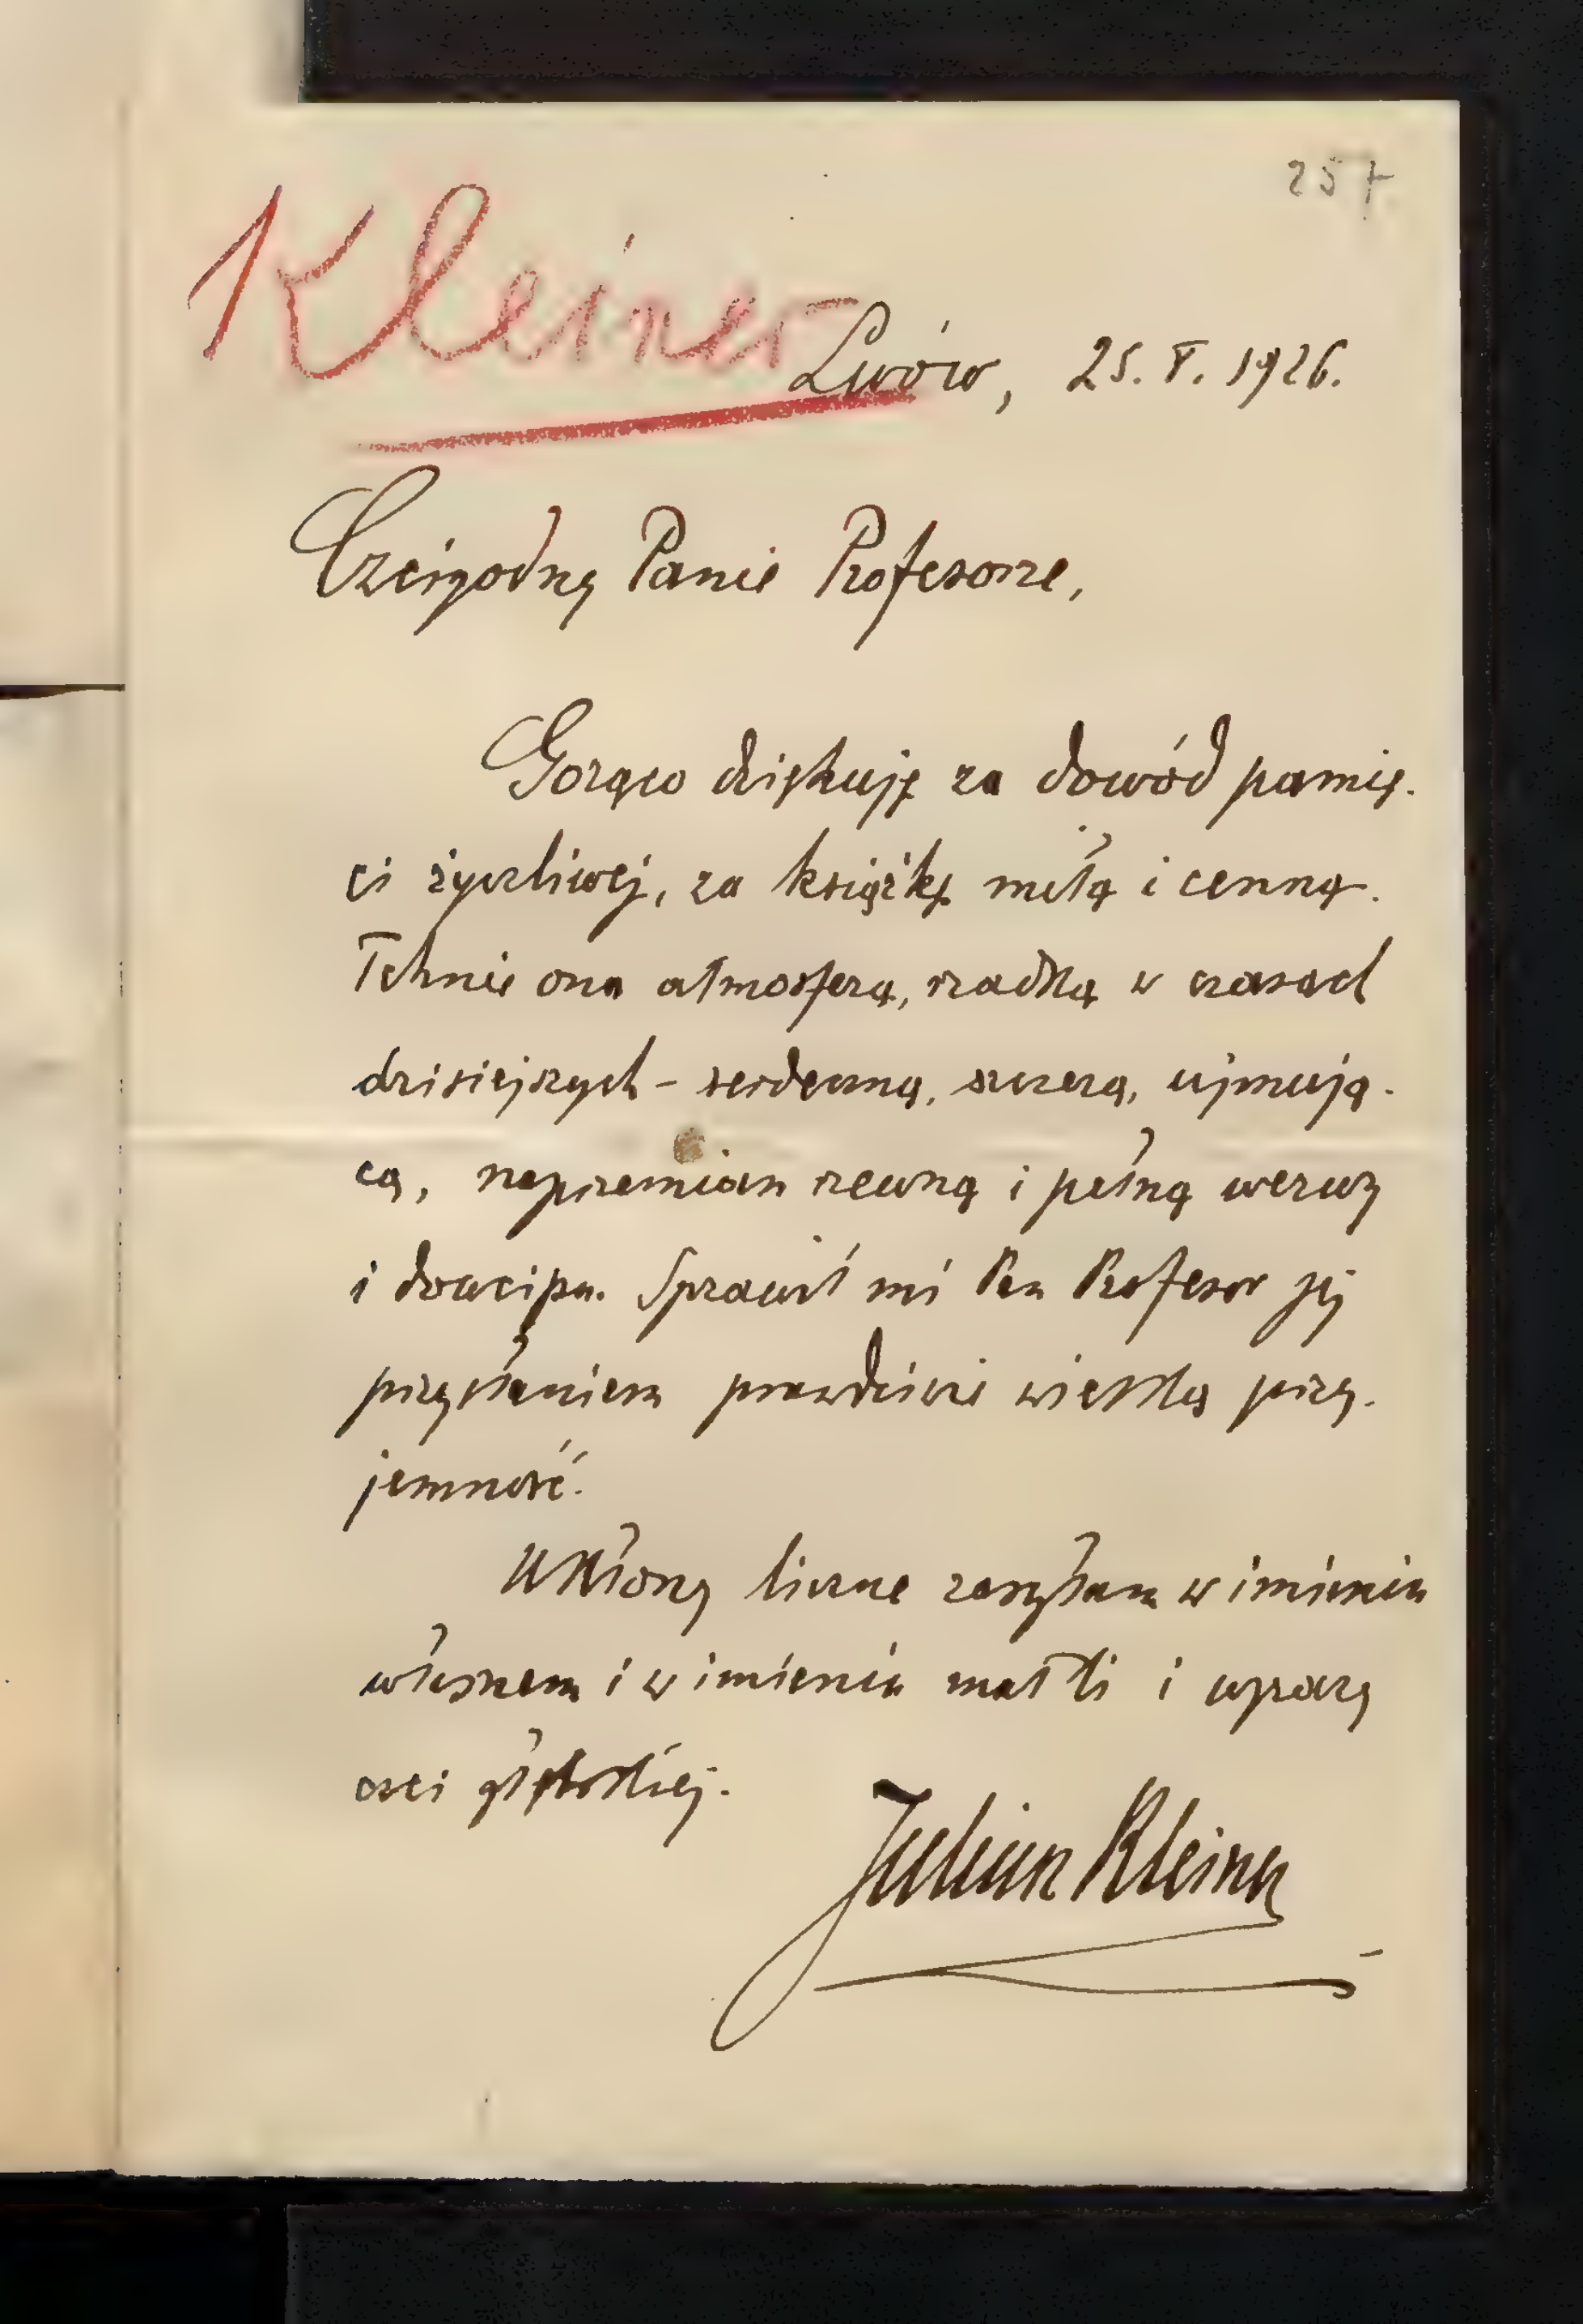 257
Kleiner
Lwów, 25. V. 1926.
Czcigodny Panie Profesorze,
Gorąco dziękuję za dowód pamię-
ci życzliwej, za książkę miłą i cenną.
Tchnie ona atmosferą, rzadką w czasach
dzisiejszych – serdeczną, szczerą, ujmują-
cą, naprzemian rzewną i pełną werwy
i dowcipu. Sprawił mi Pan Profesor jej
przysłaniem prawdziwie wielką przy-
jemność.
Ukłony liczne zasyłam w imieniu
własnem i w imieniu matki i wyrazy
czci głębokiej.
Juliusz Kleiner